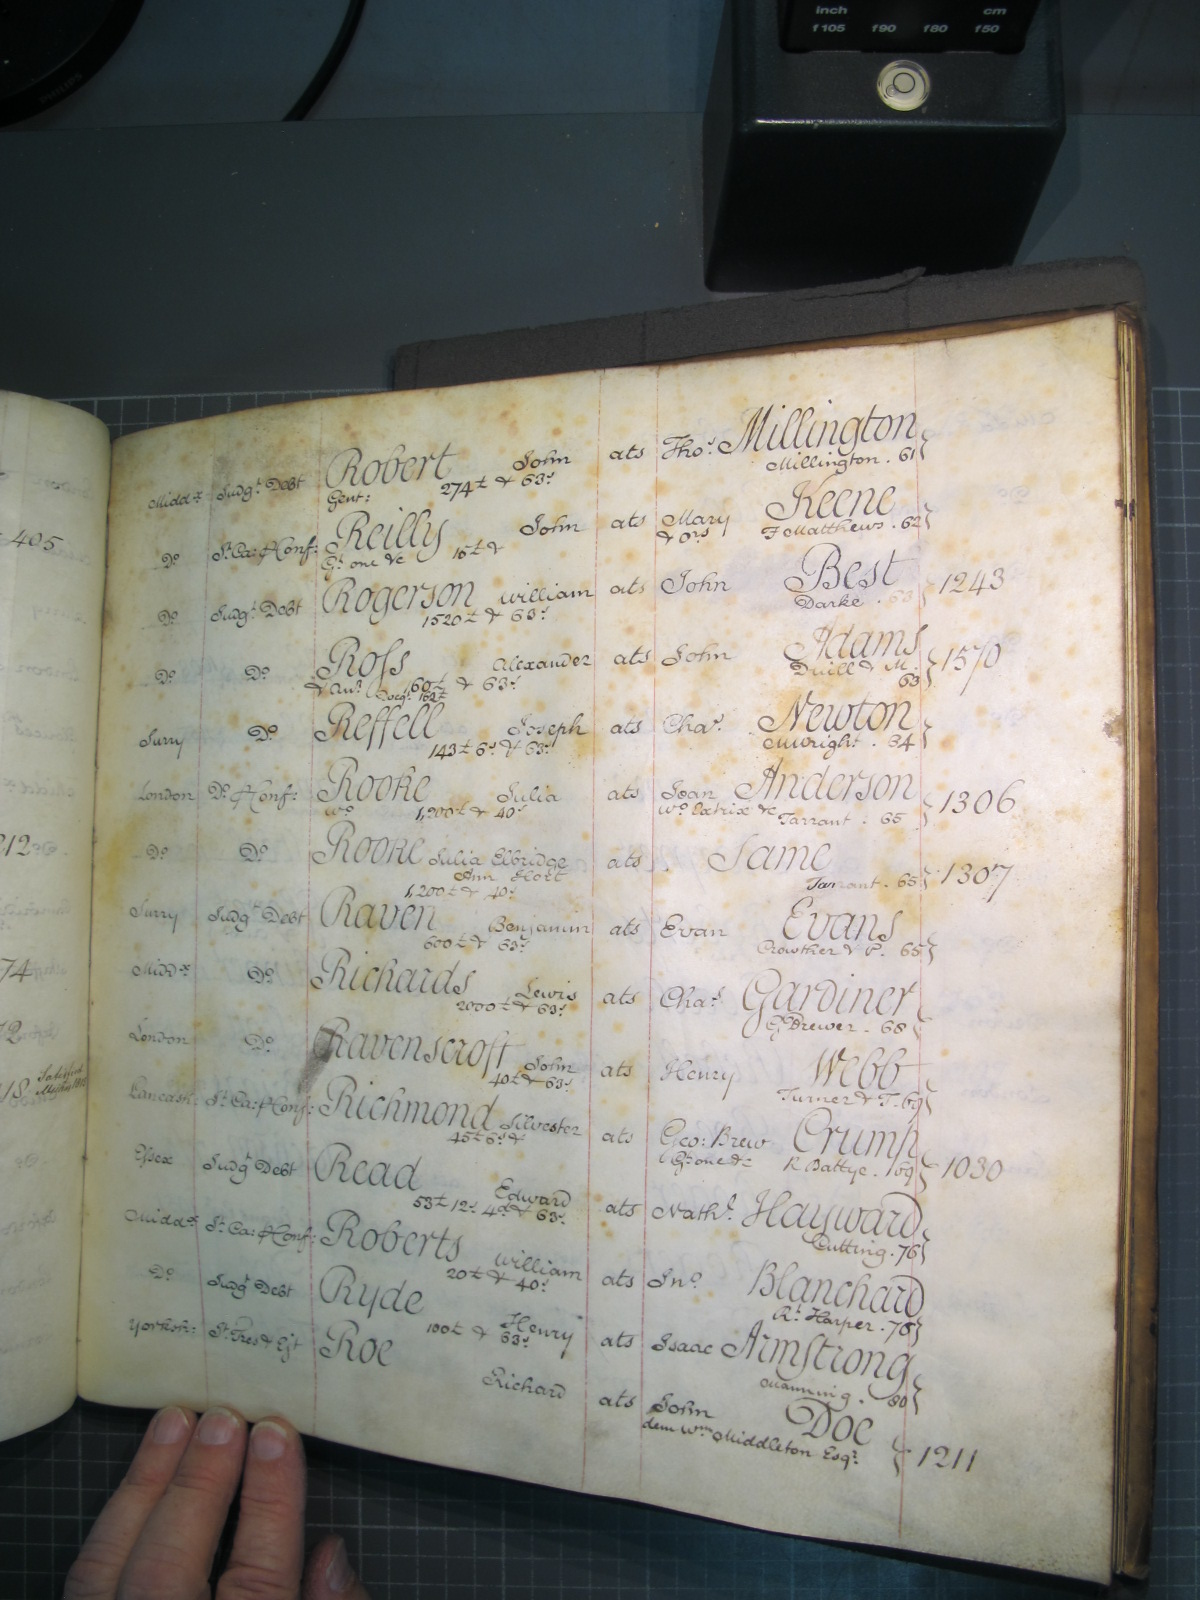 inch cm
f105 f90 f80 f50
PHILIPS
405
212
74
72
18 Satisfied
Middx Judgt Debt Robert John ats Thos Millington
Gent: 274£ & 63s Millington . 61
Do St Ca: Conf: Reilly John ats Mary Keene
Gt one &c 15£ & & ors F Matthews . 62
Do Judgt Debt Rogerson William ats John Best 1243
1520£ & 63s Darke . 63
Do Do Ross Alexander ats John Adams 1570
& Anr 60£ & 63s Druill & M. 63
Surry Do Reffell Joseph ats Chas Newton
143£ 6s & 63s Mwright . 64
London Do Conf: Rooke Julia ats Joan Anderson 1306
Wo 1,200£ & 40s Wo Extrix &c Tarrant . 65
Do Do Rooke Julia Elbridge ats Same 1307
Ann Hort
1,200£ & 40s Tarrant . 65
Surry Judgt Debt Raven Benjamin ats Evan Evans
600£ & 63s Crowther & P. 65
Middx Do Richards Lewis ats Chas Gardiner
2000£ & 63s Gs Brewer . 68
London Do Ravenscroft John ats Henry Webb
40£ & 63s Turner & T. 69
Lancash: St Ca: Conf: Richmond Silvester ats Geo: Brew Crump 1030
45£ 6s & Gt one &c R Battye . 169
Essex Judgt Debt Read Edward ats Nathl Hayward
53£ 12s 4d & 63s Cutting . 76
Middx St Ca: Conf: Roberts William ats Jno Blanchard
20£ & 40s Rt Harper . 78
Do Judgt Debt Ryde Henry ats Isaac Armstrong
100£ & 63s Manning . 80
Yorksh: St Tres & Ejt Roe Richard ats John Doe 1211
dem Wm Middleton Esqr